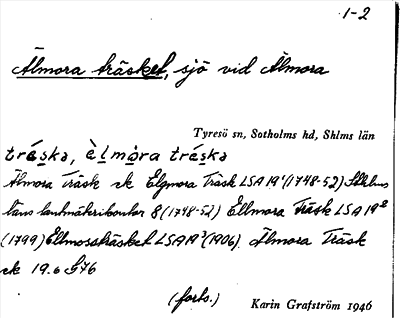 1-2
Älmora träsket, sjö vid Älmora
Tyresö sn, Sotholms hd, Shlms län
tréska, èlmòra tréska
Älmora Träsk ek Elgmora Träsk LSA 19¹ (1748-52) Sthlms
läns lantmäterikontor 8 (1748-52) Ellmora Träsk LSA 19²
(1799) Ellmossträsket LSA 19³ (1906). Älmora Träsk
ek 19.6 G76
(forts.)
Karin Grafström 1946